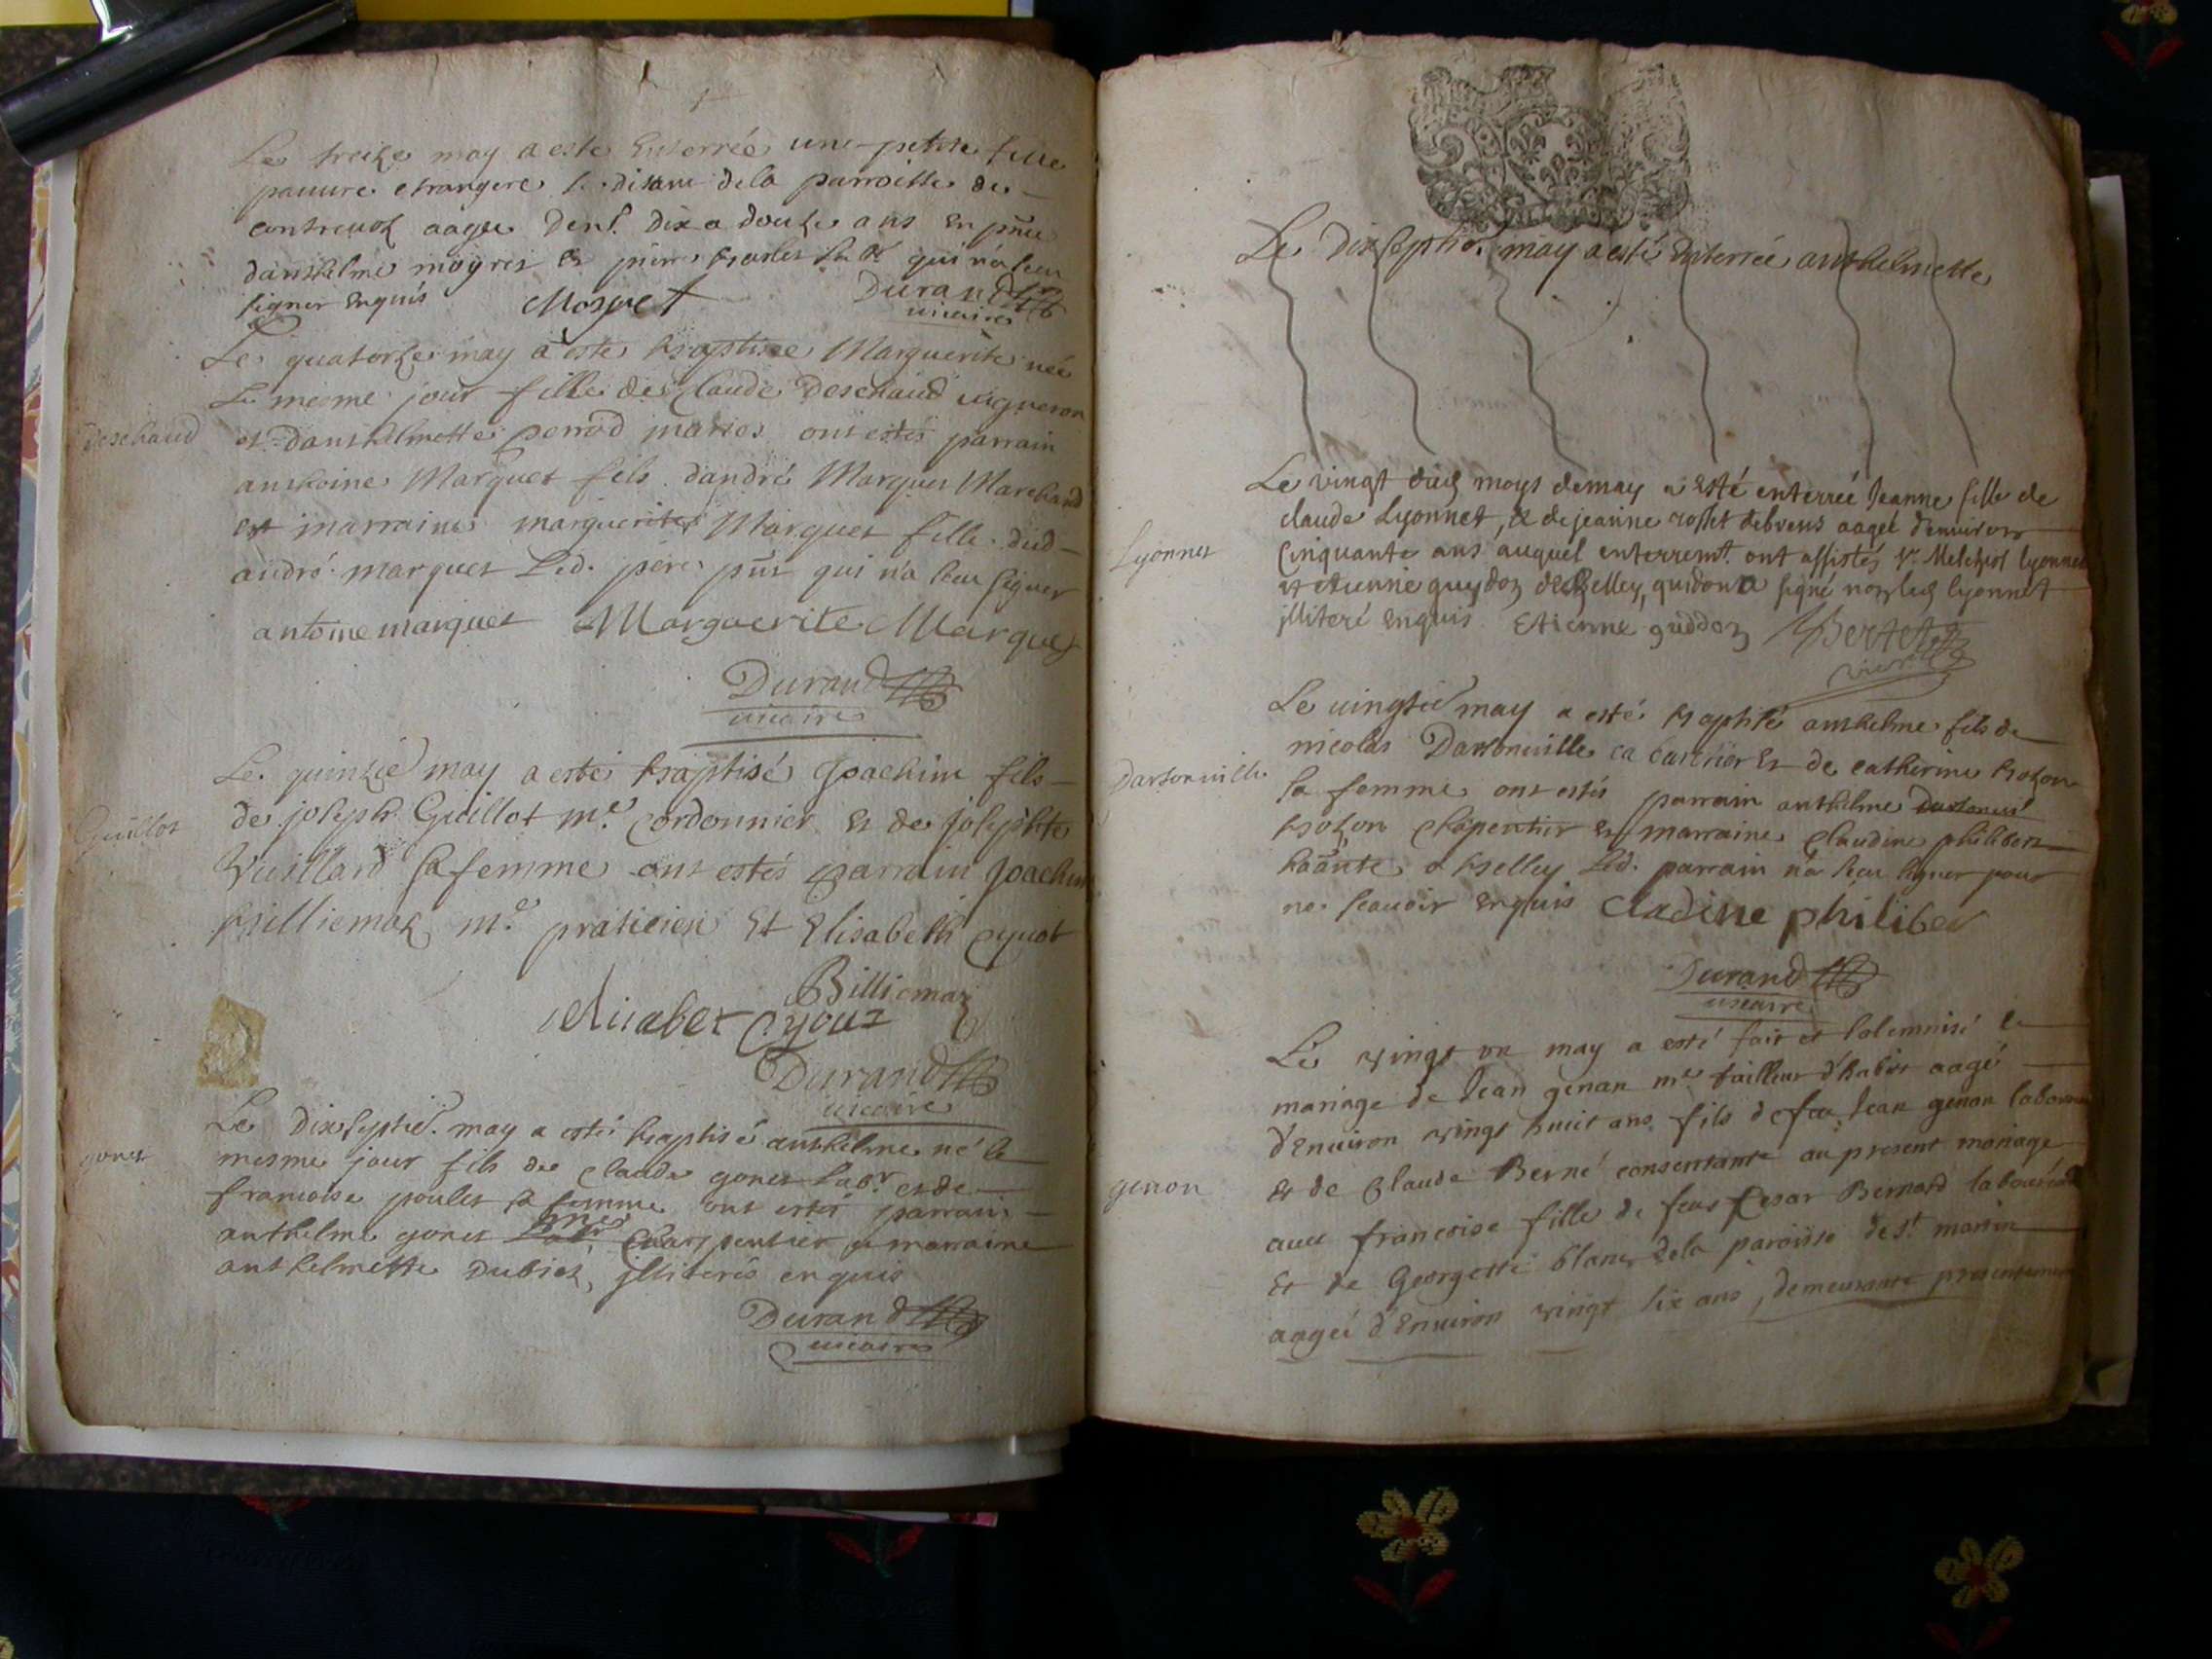 Le treize may a esté Enterrée une petite fille
pauure etrangere se disant dela parroisse de
contreuoz aagée denv. dix a douze ans En pñce
danthelme moyret Et qui n'a sceu
signer Enquis Moyret Durand
vicaire
Le quatorze may a esté baptisée Marguerite née
Le mesme jour fille de Claude Deschaud uigneron
deschaud
et danthelmette perrod mariés ont estés parrain
anthoine Marquet fils dandré Marquet Marchand
et marraine marguerite Marquet fille dud
andré marquet Led. pere pñt qui n'a sceu signer
antoine marquet Marguerite Marquet
Durand
vicaire
Le quinzie may a esté baptisé Joachim fils
Guillot
de joseph Guillot me. Cordonnier Et de josephte
Vuillard sa femme ont estés parrain Joachim
billiemaz me. praticien Et Elisabeth Cyuot
Billiemaz
Durand
vicaire
Le dixseptie. may a esté baptisé anthelme né le
gonet
mesme jour fils de Claude gonet Labr. et de
francoise poulet sa femme ont estés parrain
anthelme gonet me Charpentier et marraine
anthelmette Dubiez, jlliterés enquis
Durand
vicaire
Le Dixseptie. may a esté Enterrée anthelmette
Le vingt moys de may a Esté enterreé Jeanne fille de
claude Lyonnet, & de jeanne rosset aageé d'enuiron
Lyonnet
Cinquante ans auquel enterremt. ont assistés Sr. Melchiol lyonnet
et etienne guydoz de Belley, guidon a signé non led lyonnet
jlliteré Enquis Etienne guddoz Bertet
vicaire
Le uingtie may a esté baptisé anthelme fils de
nicolas Dartonuille Et de catherine bozon
dartonuille
sa femme ont estés parrain anthelme
bozon Charpentier Et marraine Claudine philibert
a belley Led. parrain n'a sceu signer pour
ne scauoir Enquis Cladine philiber
Durand
vicaire
Le vingt un may a esté fait et solemnisé le
mariage de Jean genon me tailleur d'habits aagé
d'Enuiron vingt huict ans fils de feu Jean genon laboureur
genon
Et de Claude Berné consentante au present mariage
auec francoise fille de feu Cesar Bernard laboureur
Et de Georgette blanc dela paroisse de st. martin
aageé d'Enuiron vingt six ans, demeurante presentement